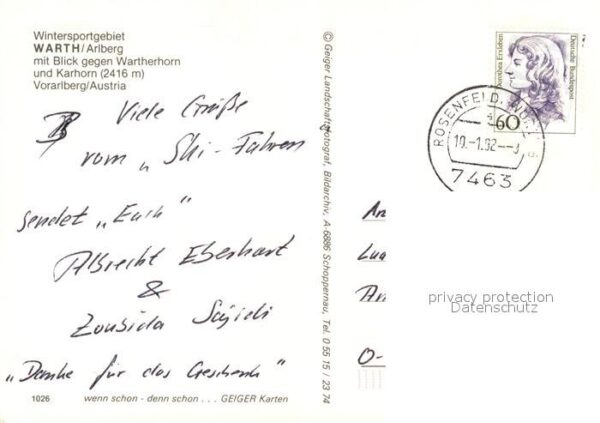 Wintersportgebiet
WARTH/Arlberg
mit Blick gegen Wartherhorn
und Karhorn (2416 m)
Vorarlberg/Austria
Viele Grüße
vom „Ski-Fahren
sendet „Euch"
Albrecht Eberhart
&
„Danke für das Geschenk"
1026 wenn schon - denn schon . . . GEIGER Karten
© Geiger Landschaftsfotograf, Bildarchiv, A-6886 Schoppernau, Tel. 0 55 15 / 23 74
Dorothea Erxleben
Deutsche Bundespost
60
ROSENFELD, WÜRTT
10.-1.92--
7463
An
O-
privacy protection
Datenschutz